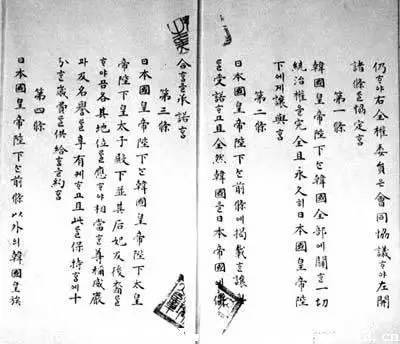 仍ᄒᆞ야右全權委員은會同協議ᄒᆞ야左開
諸條를協定홈
第一條
韓國皇帝陛下는韓國全部에關ᄒᆞᆫ一切
統治權을完全且永久히日本國皇帝陛
下에게讓與홈
第二條
日本國皇帝陛下는前條에揭載ᄒᆞᆫ讓與
를受諾ᄒᆞ고且全然韓國을日本帝國에併
合홈을承諾홈
第三條
日本國皇帝陛下는韓國皇帝陛下太皇
帝陛下皇太子殿下並其后妃及後裔로
ᄒᆞ야곰各其地位를應ᄒᆞ야相當ᄒᆞᆫ尊稱威嚴
과及名譽를享有케ᄒᆞ고且此를保持홈에十
分ᄒᆞᆫ歲費를供給홈을約홈
第四條
日本國皇帝陛下는前條以外의韓國皇族